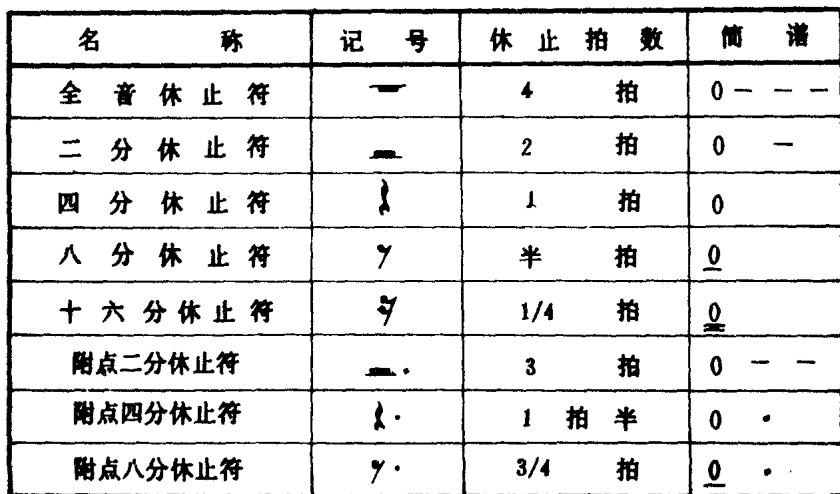 名 称 记 号 休 止 拍 数 简 谱
全 音 休 止 符 4 拍 0 — — —
二 分 休 止 符 2 拍 0 —
四 分 休 止 符 1 拍 0
八 分 休 止 符 半 拍 0
十 六 分 休 止 符 1/4 拍 0
附点二分休止符 3 拍 0 — —
附点四分休止符 1 拍 半 0 ·
附点八分休止符 3/4 拍 0 ·